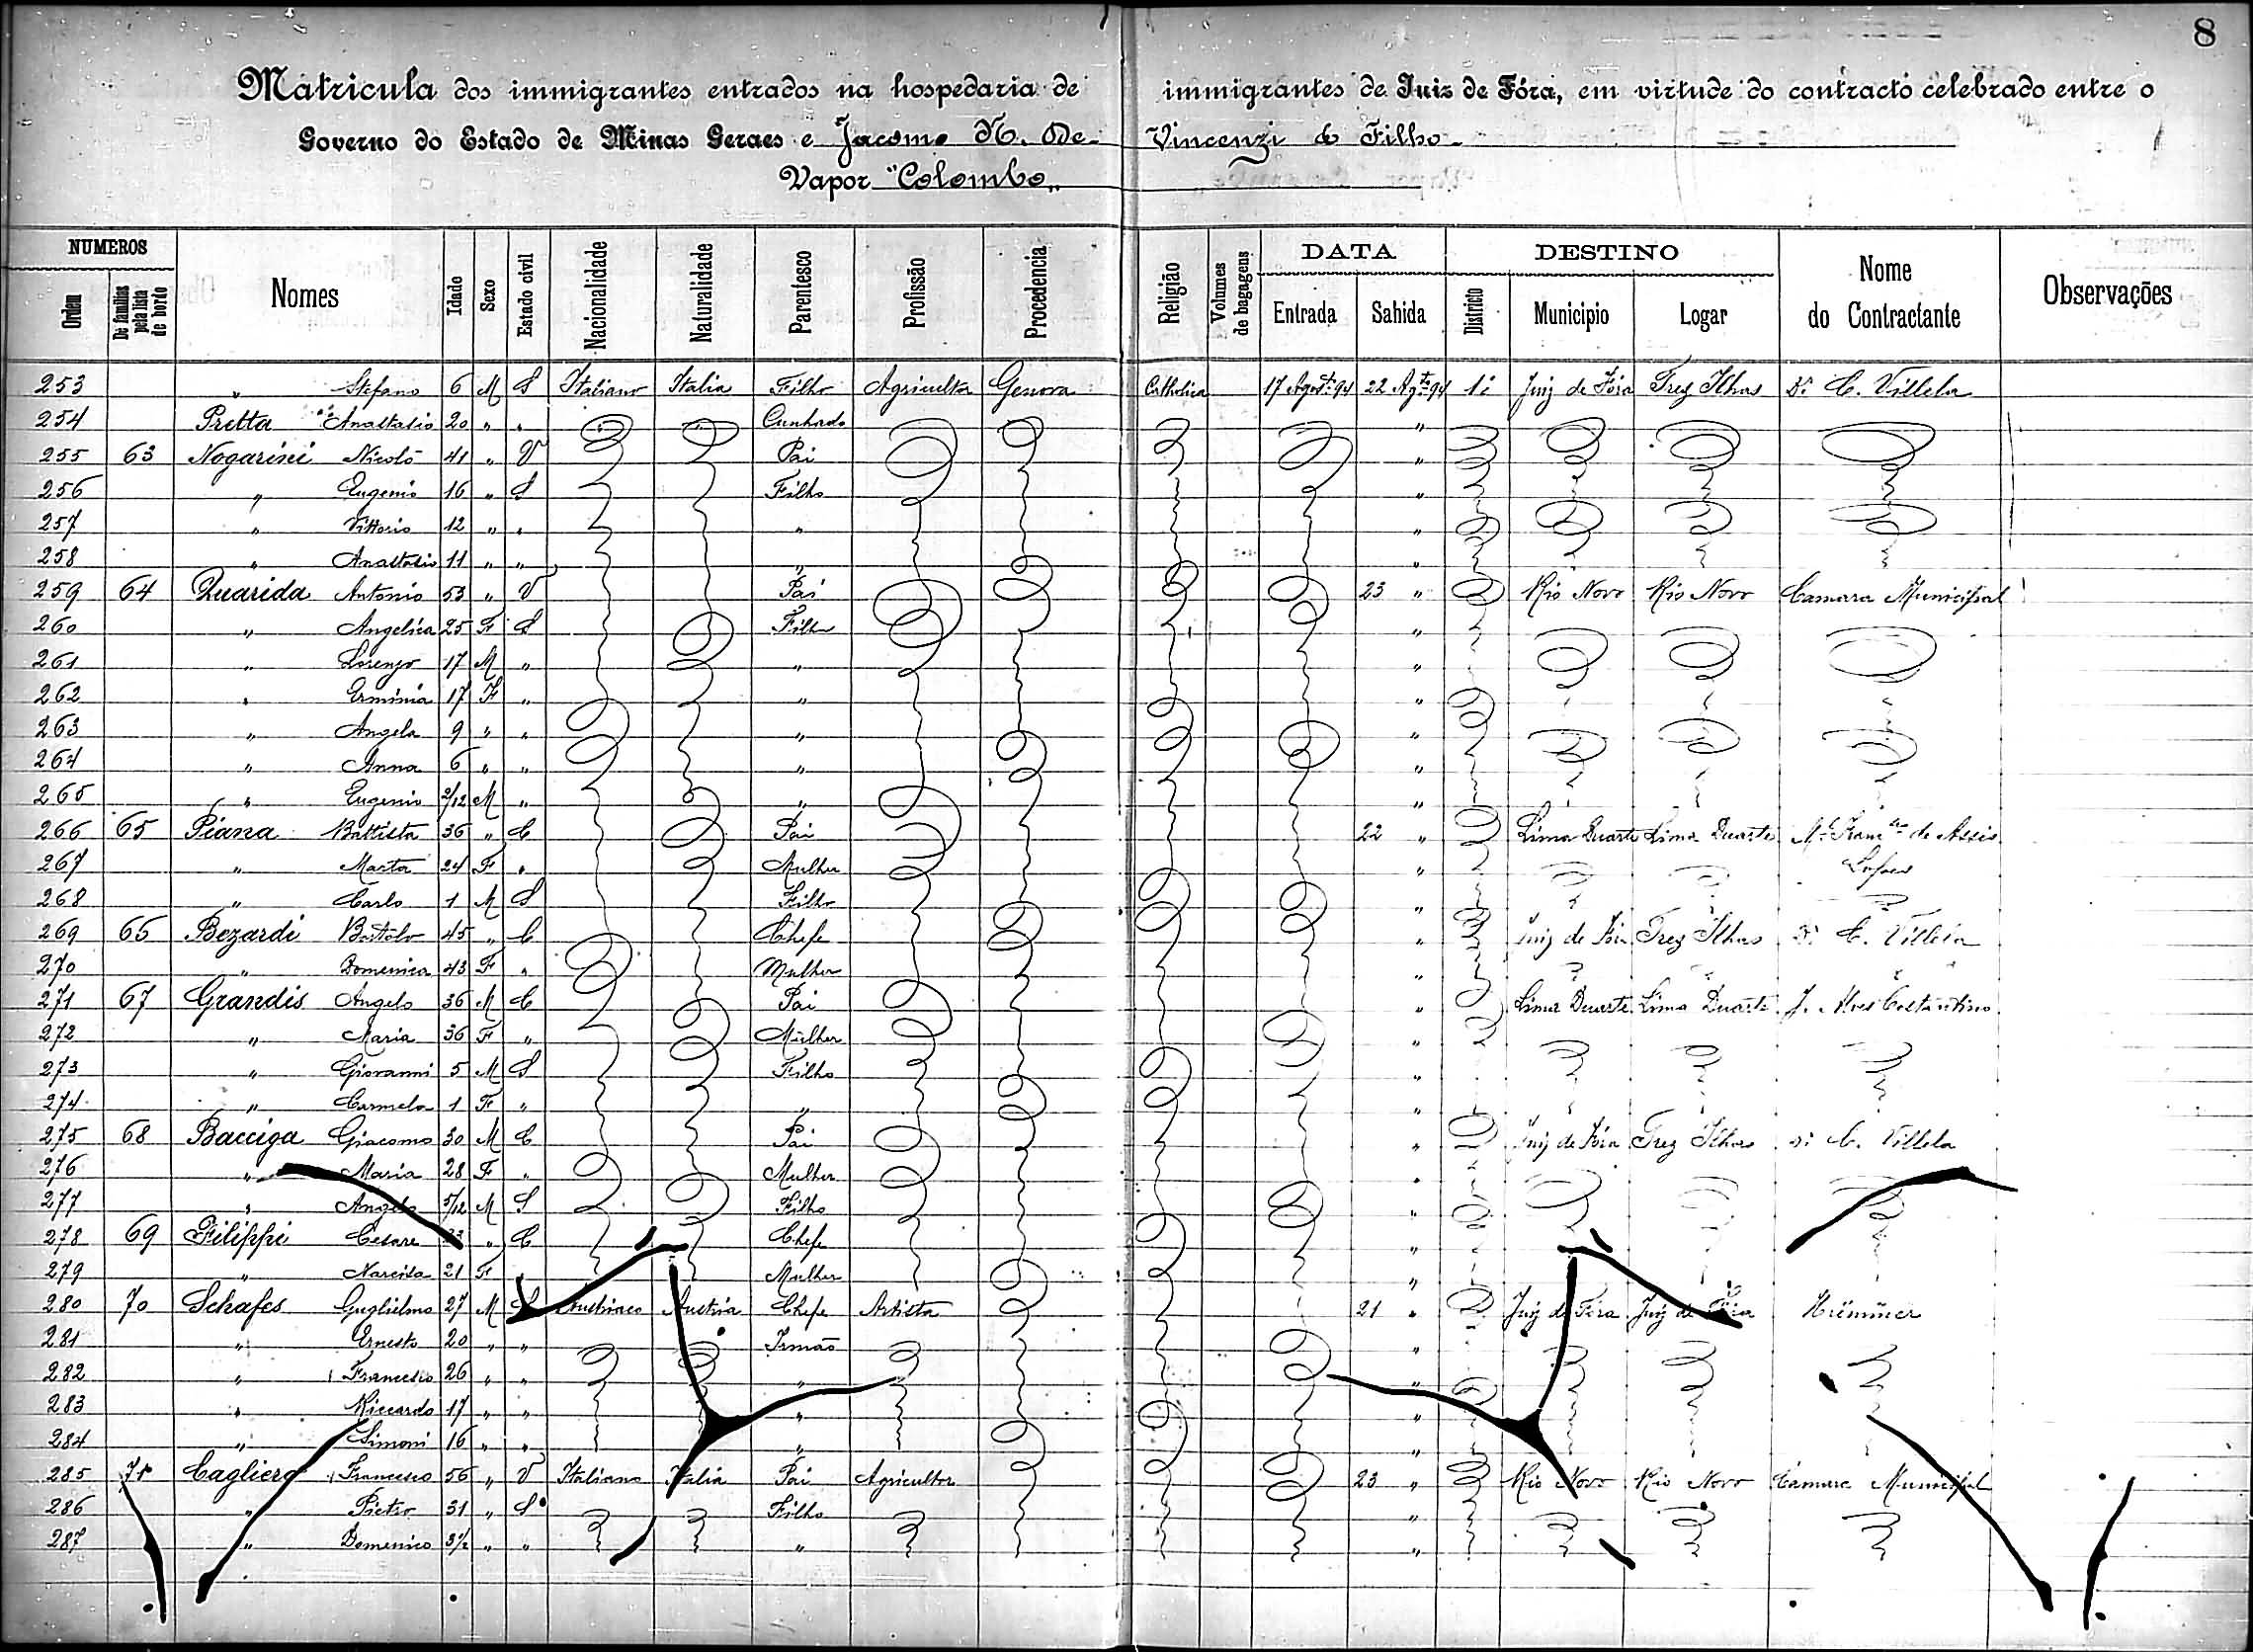 8
Matricula dos immigrantes entrados na hospedaria de immigrantes de Juiz de Fóra, em virtude do contracto celebrado entre o
Governo do Estado de Minas Geraes e Jacomo N. De Vincenzi & Filho
Vapor "Colombo"
NUMEROS Nomes Idade Sexo Estado civil Nacionalidade Naturalidade Parentesco Profissão Procedencia Religião Volumes de bagagens DATA DESTINO Nome do Contractante Observações
Ordem De familias pela lista de bordo Entrada Sahida Districto Municipio Logar
253 " Stefano 6 M S Italiano Italia Filho Agriculta Genova Catholica 17 Agost. 94 22 Agto 94 1º Juiz de Fóra Trez Ilhas Dr C. Villela
254 Pretta Anastasio 20 " " Cunhado "
255 63 Nogarini Nicolò 41 " V Pai "
256 " Eugenio 16 " S Filho "
257 " Vittorio 12 " " " "
258 " Anastasio 11 " " " "
259 64 Quarida Antonio 53 " V Pai 23 " Rio Novo Rio Novo Camara Municipal
260 " Angelica 25 F S Filha "
261 " Lorenzo 17 M " " "
262 " Erminia 17 F " " "
263 " Angela 9 " " " "
264 " Anna 6 " " " "
265 " Eugenio 2/12 M " " "
266 65 Piana Battista 36 " C Pai 22 " Lima Duarte Lima Duarte Franco de Assis
267 " Marta 24 F " Mulher "
268 " Carlo 1 M S Filho "
269 66 Bezardi Bortolo 45 " C Chefe " Juiz de Fóra Trez Ilhas Dr C. Villela
270 " Domenica 43 F " Mulher "
271 67 Grandis Angelo 36 M C Pai " Lima Duarte Lima Duarte J. Alves Costantino
272 " Maria 36 F " Mulher "
273 " Giovanni 5 M S Filho "
274 " Carmela 1 F " " "
275 68 Bacciga Giacomo 30 M C Pai " Juiz de Fóra Trez Ilhas Dr C. Villela
276 " Maria 28 F " Mulher "
277 " Angelo 5/12 M S Filho "
278 69 Filippi Cesare " C Chefe "
279 " Narcisa 21 F Mulher "
280 70 Schafes Guglielmo 27 M S Austriaco Austria Chefe Artista 21 " Juiz de Fóra Juiz de Fóra
281 " Ernesto 20 " " Irmão "
282 " Francesco 26 " " " "
283 " Riccardo 17 " " " "
284 " Simoni 16 " " " "
285 71 Cagliero Francesco 56 " V Italiano Italia Pai Agricultor 23 " Rio Novo Rio Novo Camara Municipal
286 " Pietro 31 " S Filho "
287 " Domenico " " " "